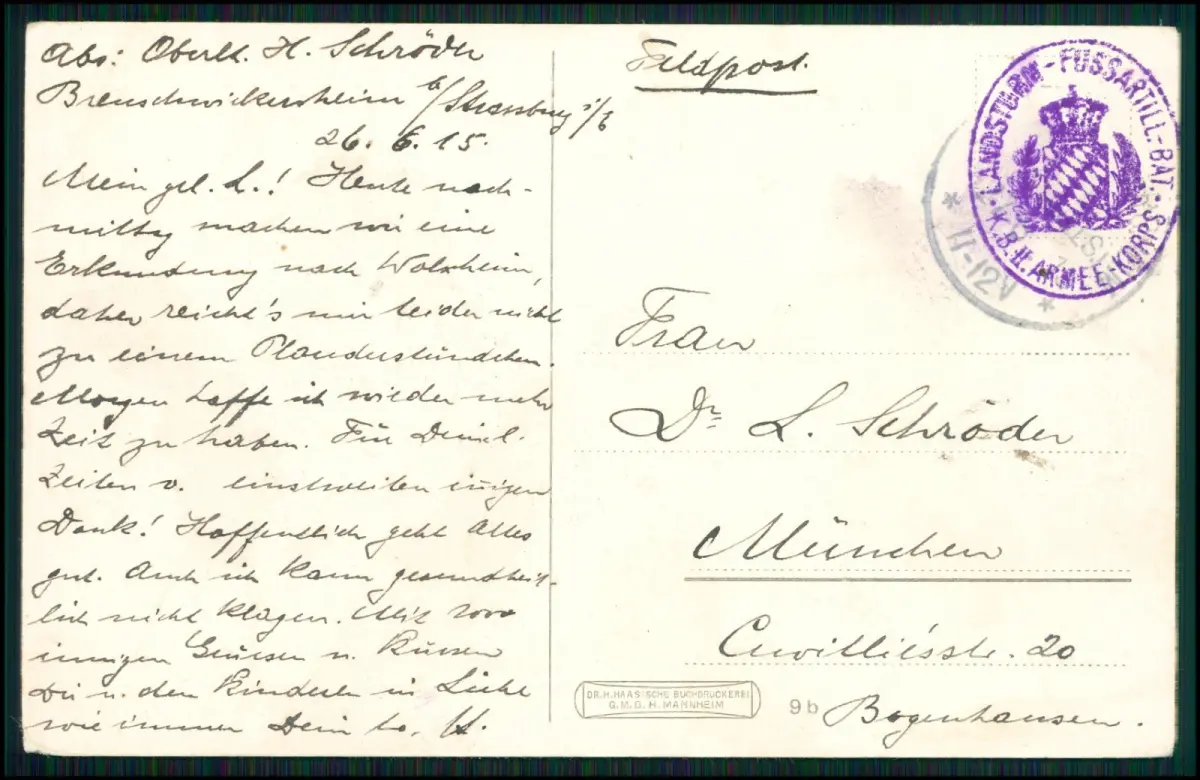 Abs: Oberlt. H. Schröder
Breuschwickersheim b/Strassburg i/E
26. 6. 15.
Mein gel. L.! Heute nach-
mittag machen wir eine
Erkundung nach Wolxheim,
daher reicht's mir leider nicht
zu einem Plauderstündchen.
Morgen hoffe ich wieder mehr
Zeit zu haben. Für Deine l.
Zeilen v. einstweilen innigen
Dank! Hoffentlich geht Alles
gut. Auch ich kann gesundheit-
lich nicht klagen. Mit 1000
innigen Grüssen u. Küssen
Dir u. den Kinderln in Liebe
wie immer Dein tr. H.
Feldpost.
LANDSTURM-FUSSARTILL.-BAT.
K.B.II.ARMEE-KORPS
11-12V
Frau
Dr. L. Schröder
München
Cuvilliésstr. 20
Bogenhausen.
DR. H. HAAS'SCHE BUCHDRUCKEREI
G.M.B.H. MANNHEIM
9b